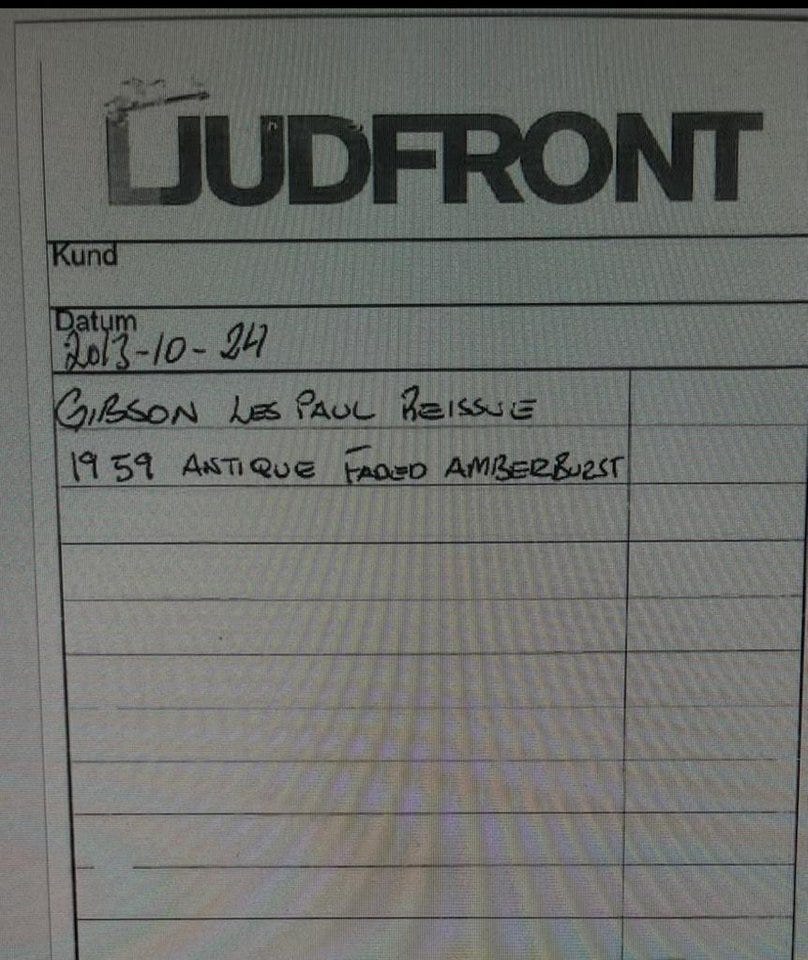 LJUDFRONT
Kund
Datum
2013-10-24
GIBSON LES PAUL REISSUE
1959 ANTIQUE FADED AMBERBURST